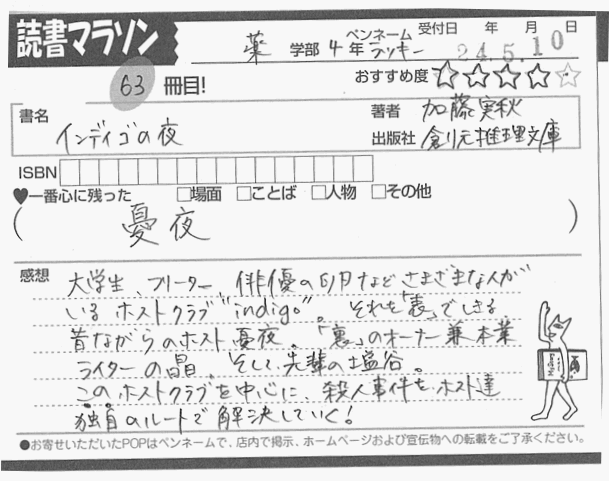 読書マラソン
受付日 年 月 日
薬 学部 4 年 ペンネーム ラッキー
24.5.10
63 冊目!
おすすめ度 ☆☆☆☆☆
書名 インディゴの夜
著者 加藤実秋
出版社 創元推理文庫
ISBN
♥一番心に残った □場面 □ことば □人物 □その他
( 憂夜 )
感想
大学生、フリーター、俳優の卵などさまざまな人が
いるホストクラブ"indigo"。それを「表」でしきる
昔ながらのホスト憂夜。「裏」のオーナー兼本業
ライターの晶。そして先輩の塩谷。
このホストクラブを中心に、殺人事件をホスト達
独自のルートで解決していく!
●お寄せいただいたPOPはペンネームで、店内で掲示、ホームページおよび宣伝物への転載をご了承ください。